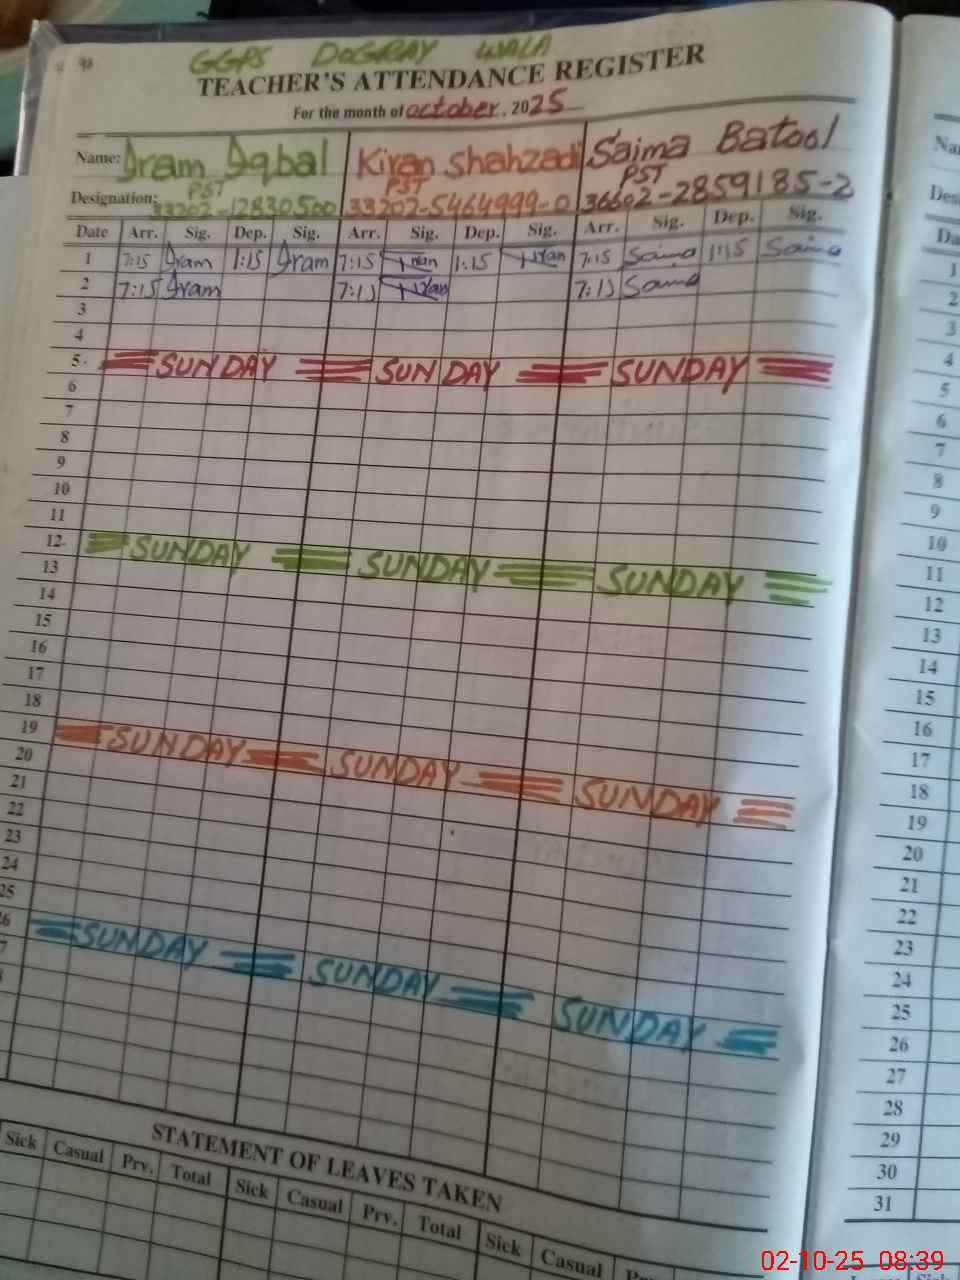 GGPS DOGRAY WALA
TEACHER'S ATTENDANCE REGISTER
For the month of october, 2025
Name: Iram Iqbal Kiran Shahzadi Saima Batool
PST PST PST
Designation: 33202-12830500 33202-5464999-0 36602-2859185-2
Date Arr. Sig. Dep. Sig. Arr. Sig. Dep. Sig. Arr. Sig. Dep. Sig.
1 7:15 Iram 1:15 Iram 7:15 Kiran 1:15 Kiran 7:15 Saima 1:15 Saima
2 7:15 Iram 7:15 Kiran 7:15 Saima
3
4
5 SUNDAY SUNDAY SUNDAY
6
7
8
9
10
11
12 SUNDAY SUNDAY SUNDAY
13
14
15
16
17
18
19 SUNDAY SUNDAY SUNDAY
20
21
22
23
24
25
6 SUNDAY SUNDAY SUNDAY
7
STATEMENT OF LEAVES TAKEN
Sick Casual Prv. Total Sick Casual Prv. Total Sick Casual
Na
Des
Da
1
2
3
4
5
6
7
8
9
10
11
12
13
14
15
16
17
18
19
20
21
22
23
24
25
26
27
28
29
30
31
02-10-25 08:39